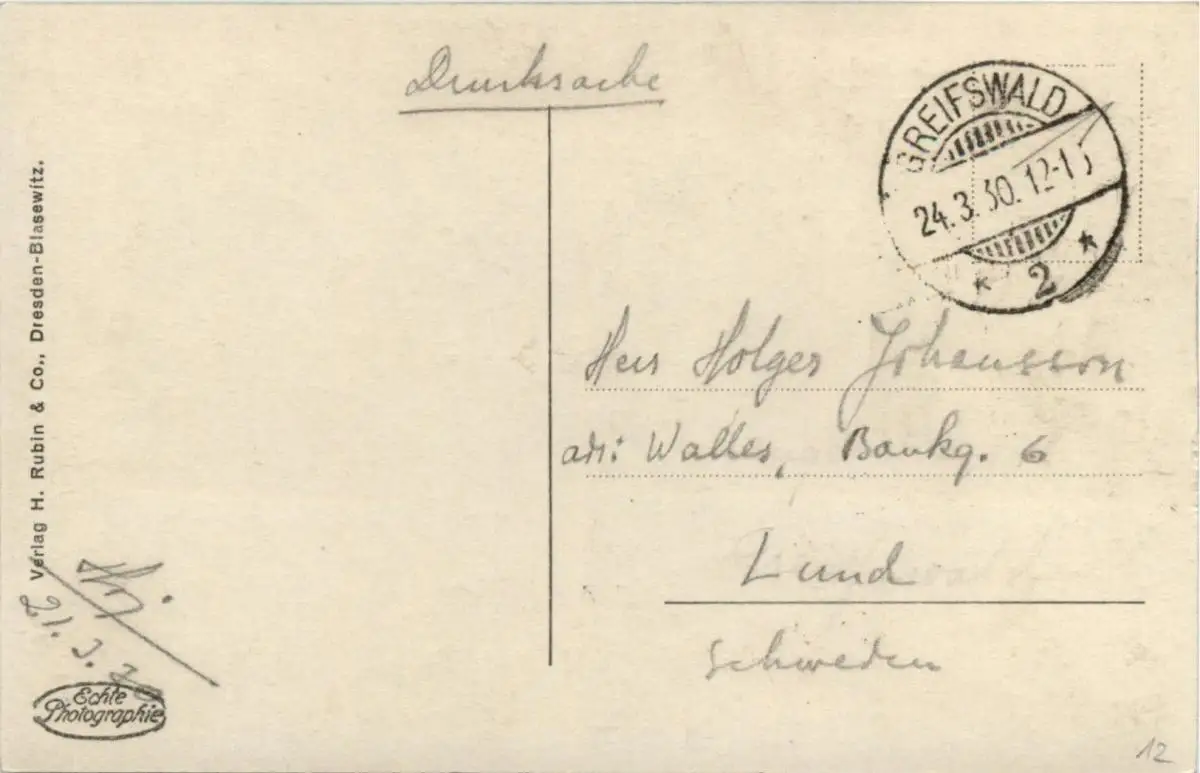 Drucksache
GREIFSWALD
24.3.30.12-1
* 2 *
Herr Holger Johansson
adr: Walles, Bankg. 6
Lund
Schweden
Verlag H. Rubin & Co., Dresden-Blasewitz.
Echte
Photographie
12